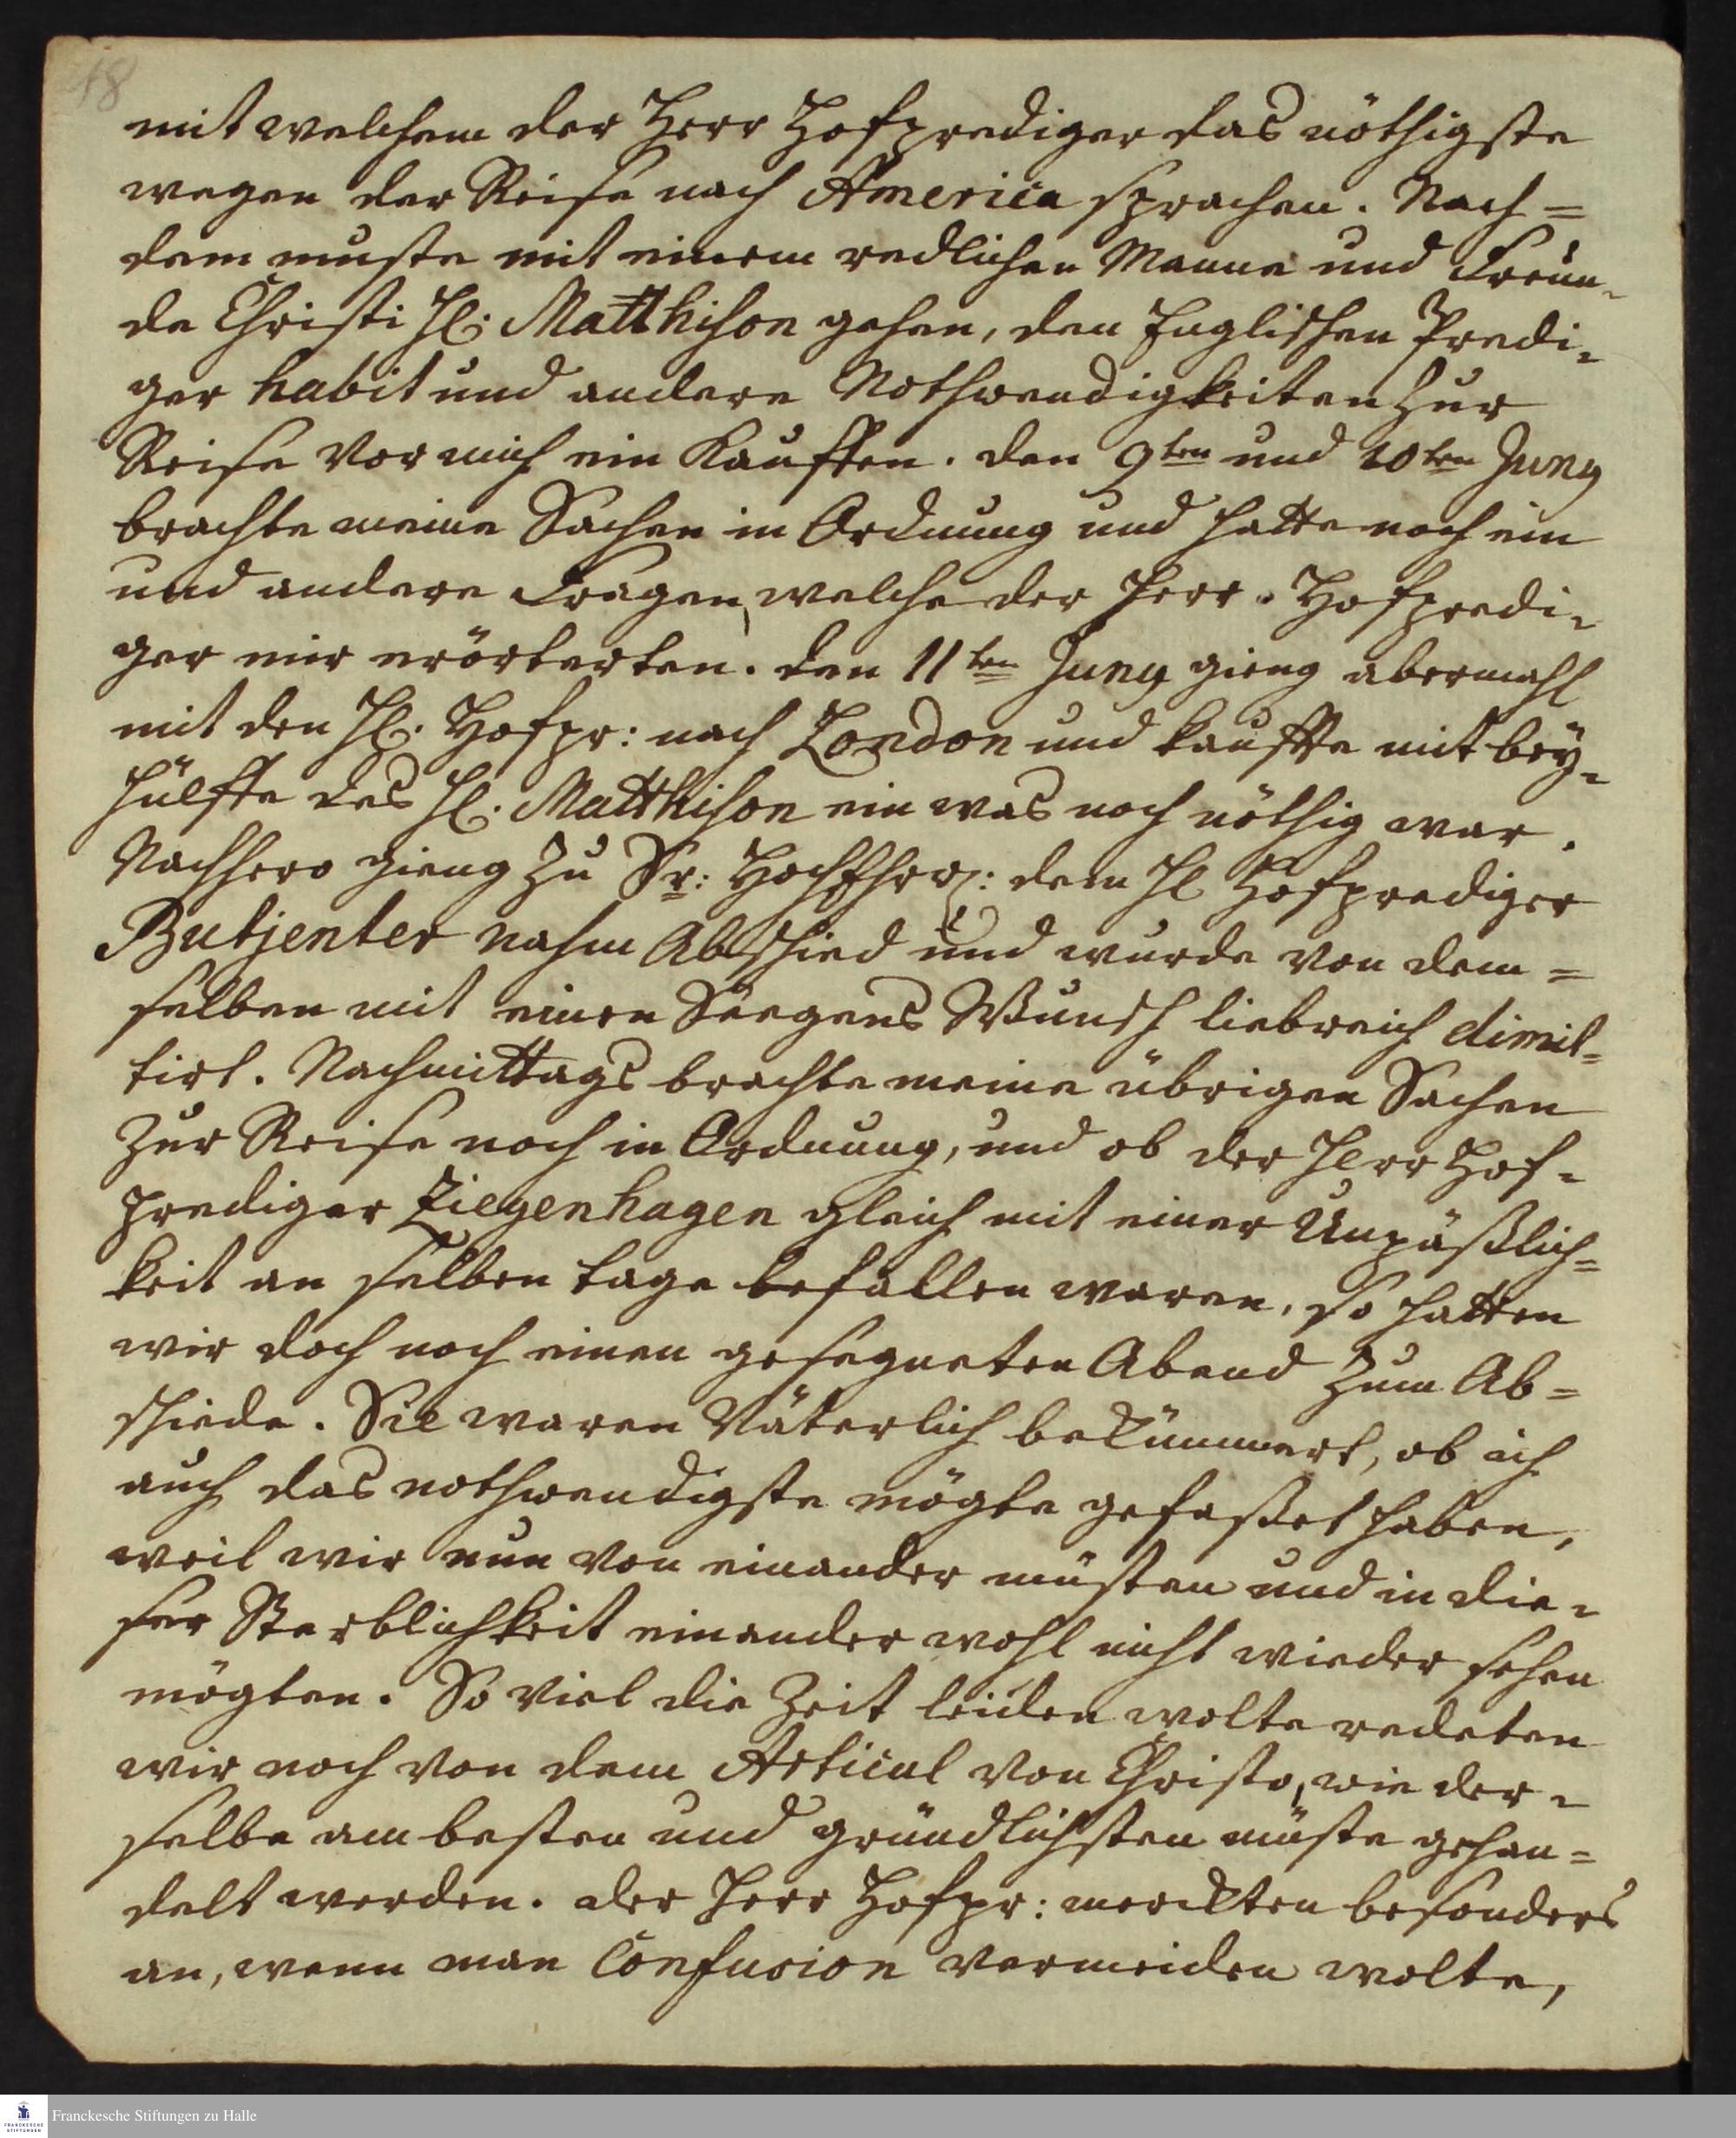 18
mit welchem der Herr Hofprediger das nöthigste
wegen der Reise nach America sprachen. Nach=
dem muste mit einem redlichen Manne und Freun-
de Christi H. Matthison gehen, den Englischen Predi-
ger habit und andere Nothwendigkeiten zur
Reise vor mich ein kauffen. den 9ten und 10ten Juny
brachte meine Sachen in Ordnung und hatte noch ein
und andere Fragen, welche der Herr Hofpredi-
ger mir erörterten. den 11ten Juny gieng abermahl
mit den H. Hofpr: nach London und kauffte mit bey-
hülffe des H. Matthison ein was noch nöthig war.
Nachhero gieng zu Sr: HochEhrw: dem H Hofprediger
Butjenter nahm Abschied und wurde von dem=
selben mit einen Seegens Wunsch liebreich dimit-
tirt. Nachmittags brachte meine übrigen Sachen
zur Reise noch in Ordnung, und ob der Herr Hof-
prediger Ziegenhagen gleich mit einer Unpäßlich=
keit an selben tage befallen waren, so hatten
wir doch noch einen gesegneten Abend zum Ab=
schiede. Sie waren Väterlich bekümmert, ob ich
auch das nothwendigste mögte gefaßet haben,
weil wir nun von einander müsten und in die-
ser Sterblichkeit einander wohl nicht wieder sehen
mögten. So viel die Zeit leiden wolte redeten
wir noch von dem Articul von Christo, wie der-
selbe am besten und gründlichsten müste gehan=
delt werden. der Herr Hofpr: merckten besonders
an, wenn man Confusion vermeiden wolte,
FRANCKESCHE STIFTUNGEN
Franckesche Stiftungen zu Halle